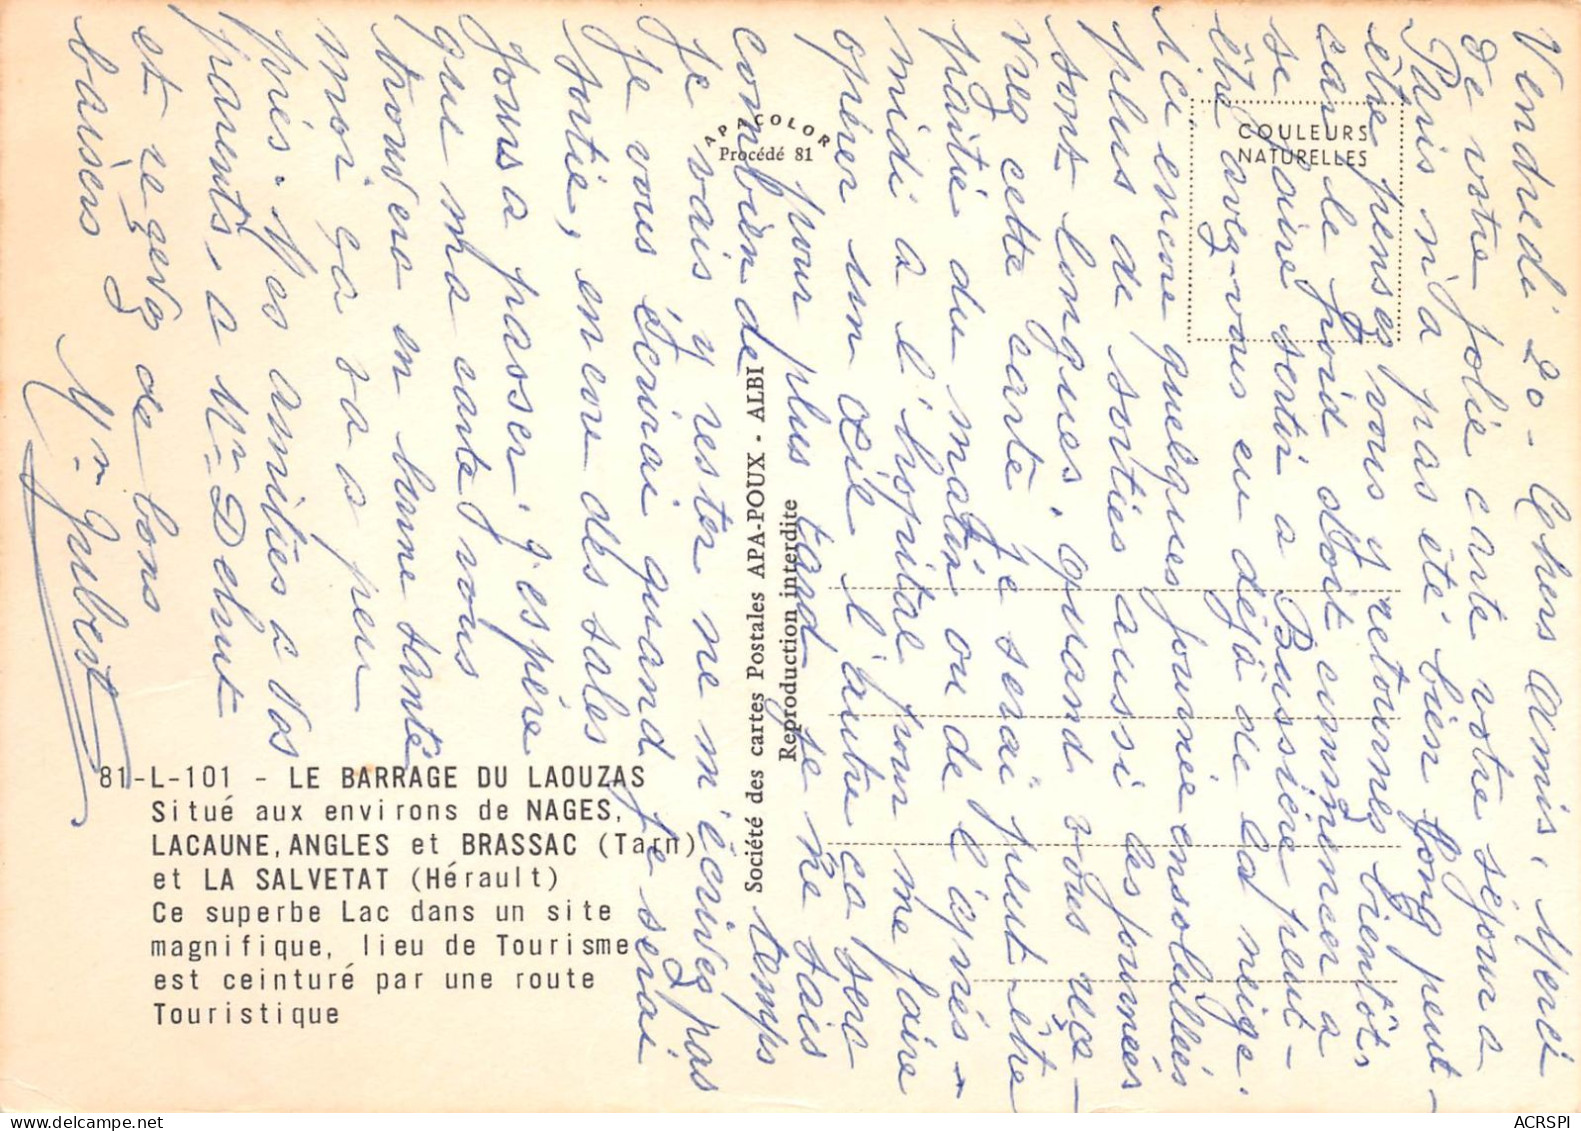 Vendredi 20 - Chers Amis, Merci
de votre jolie carte votre séjour a
Paris n'a pas été bien long peut-
être pensez vous y retournez bientôt,
car le froid doit commencer a
se faire sentir a Bussière peut-
être avez-vous eu déjà de la neige.
ici encore quelques journée ensoleillées
plus de sorties aussi les journées
sont longues, quand vous rece-
vrez cette carte je serai peut-être
partie du matin ou de l'après-
midi a l'hopital pour me faire
opérer un œil l'autre ce sera
pour plus tard je ne sais
combien de temps
je vais y rester ne m'écrivez pas
je vous écrirai quand je serai
sortie, encore des sales
jours a passer j'espère
que ma carte vous
trouvera en bonne santé
moi ça va a peu
près. Mes amitiés a Vos
parents, a Mr Dehut
et recevez de bons
baisers
Mme Jaubert
COULEURS
NATURELLES
APA COLOR
Procédé 81
Société des cartes Postales APA-POUX - ALBI
Reproduction interdite
81-L-101 - LE BARRAGE DU LAOUZAS
Situé aux environs de NAGES,
LACAUNE, ANGLES et BRASSAC (Tarn)
et LA SALVETAT (Hérault)
Ce superbe Lac dans un site
magnifique, lieu de Tourisme
est ceinturé par une route
Touristique
ACRSPI